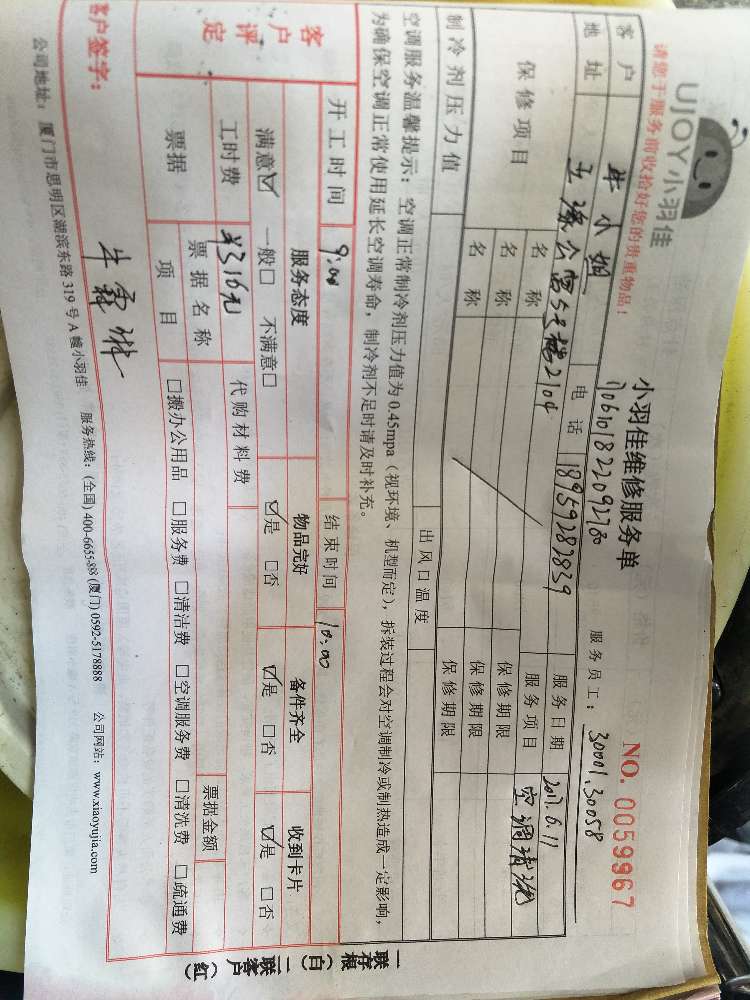 UJOY小羽佳
小羽佳维修服务单
NO. 0059967
请您于服务前收拾好您的贵重物品!
1706101822092780
服务员工: 30001.30058
客户 牛小姐 电话 18959282839 服务日期 2017.6.11
地址 公寓5号楼2104 服务项目 空调清洗
保修项目 名称 保修期限
名称 保修期限
名称 保修期限
制冷剂压力值 出风口温度
空调服务温馨提示:空调正常制冷剂压力值为0.45mpa(视环境、机型而定),拆装过程会对空调制冷或制热造成一定影响,
为确保空调正常使用延长空调寿命,制冷剂不足时请及时补充。
开工时间 9:00 结束时间 10:00
客户评定 服务态度 物品完好 备件齐全 收到卡片
满意☑ 一般□ 不满意□ ☑是 □否 ☑是 □否 ☑是 □否
工时费 ¥316元 代购材料费
票据 票据名称 票据金额
项目 □搬办公用品 □服务费 □清洁费 □空调服务费 □清洗费 □疏通费
客户签字:
公司地址:厦门市思明区湖滨东路319号A幢小羽佳 服务热线:(全国)400-6655-888 (厦门) 0592-5178888 公司网站:www.xiaoyujia.com
一联存根(白) 二联客户(红)